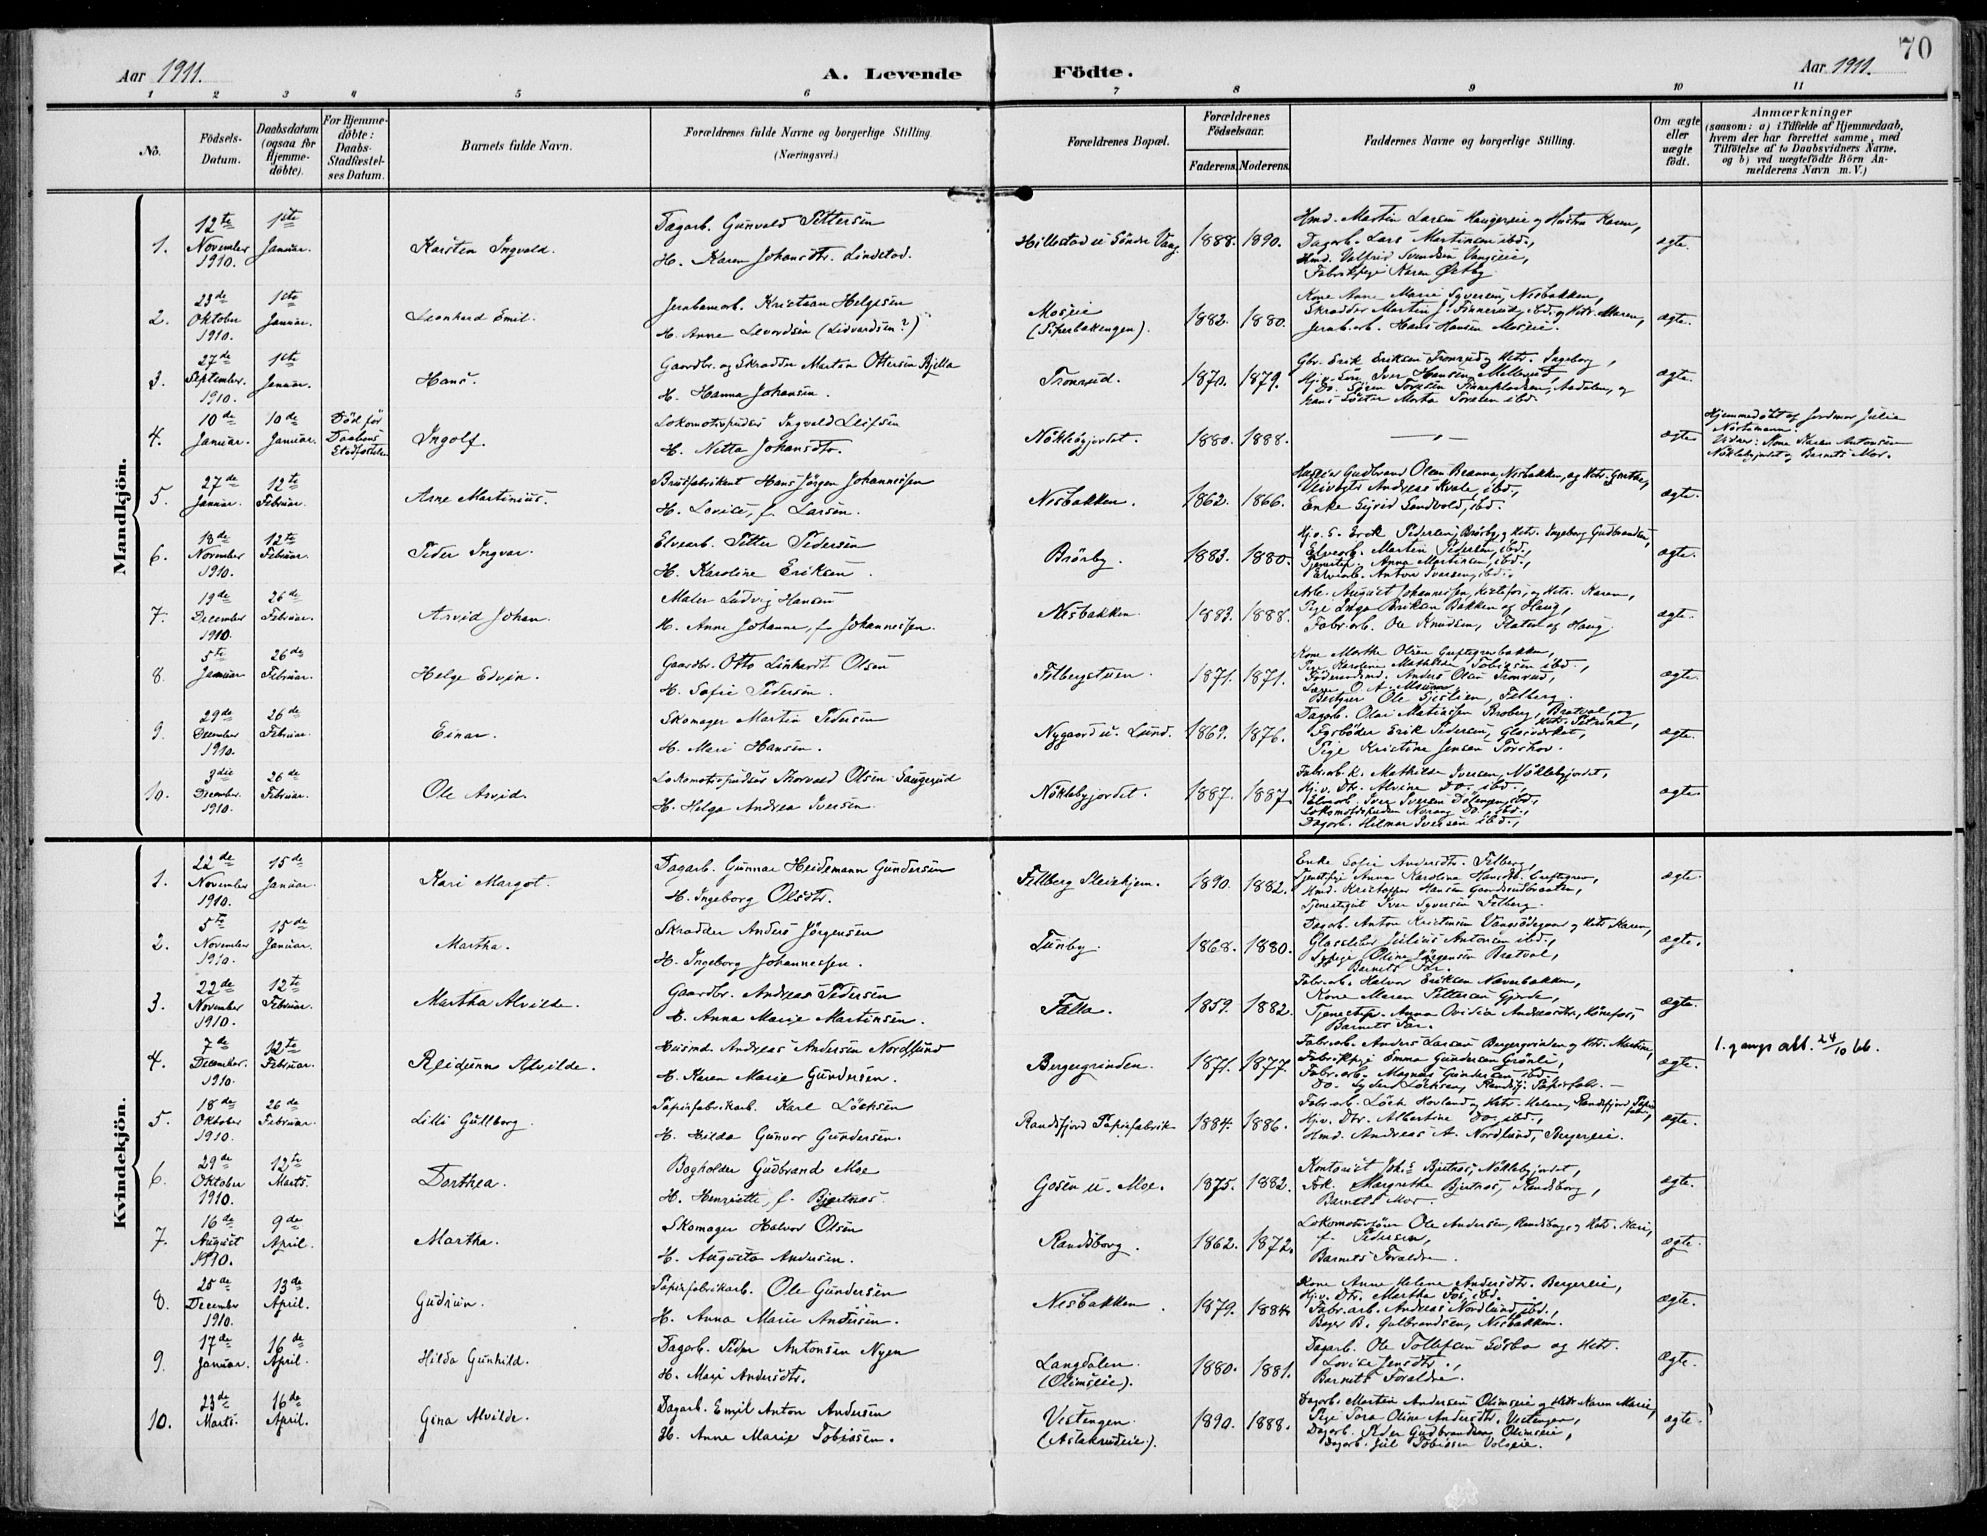 70
Aar 1911.
A. Levende Födte.
Aar 1911.
1 2 3 4 5 6 7 8 9 10 11
No.
Födsels-Datum.
Daabsdatum (ogsaa for Hjemme-döbte).
For Hjemme-döbte: Daabs-Stadfæstel-ses Datum.
Barnets fulde Navn.
Forældrenes fulde Navne og borgerlige Stilling. (Næringsvei.)
Forældrenes Bopæl.
Forældrenes Födselsaar.
Faderens. Moderens.
Faddernes Navne og borgerlige Stilling.
Om ægte eller uægte födt.
Anmærkninger
(saasom: a) i Tilfælde af Hjemmedaab,
hvem der har forrettet samme, med
Tilföielse af to Daabsvidners Navne,
og b) ved uægtefödte Börn An-
melderens Navn m. V.)
Mandkjön.
1. 12te November 1910. 1ste Januar. Karsten Ingvald.
Dagarb. Gunvald Pettersen
H. Karen Johansdtr. Lindstad.
Hillestad u. Söndre Vang. 1888. 1890.
Hmd. Martin Larsen Haugerseie og Hustru Karen,
Dagarb. Lars Martinsen ibd.,
Hmd. Valfrid Svendsen Vangseie,
Fabrikpige Karen Østby.
ægte.
2. 23de Oktober 1910. 1ste Januar. Leonhard Emil.
Jernbanearb. Kristian Helgesen
H. Anne Levordsen (Lidvardsen?)
Moseie (Piperbakkengen). 1882. 1880.
Kone Anne Marie Syversen, Nesbakken,
Skrædder Martin J. Finnerud, ibd. og Hstr. Maren,
Jernb.arb. Hans Hansen Moseie.
ægte.
3. 27de September 1910. 1ste Januar. Hans.
Gaardbr. og Skrædder Martin Ottersen Bjella
H. Hanna Johansen.
Tronrud. 1870. 1879.
Gbr. Erik Eriksen Tronrud og Hstr. Ingeborg,
Hj.v. Sön Iver Hansen Mellerud,
Do. Sören Torsten Finnepladsen, Aadalen, og
hans Söster Marta Torsten ibd.
ægte.
4. 10de Januar. 10de Januar. Död för Daabens Stadfæstelse Ingolf.
Lokomotivpudser Ingvald Leifsen
H. Netta Johansdtr.
Nöklebyjordet. 1880. 1888.
— „ —
ægte.
Hjemmedöbt af Jordmor Julia
Nortomann.
Vidner: Kone Karen Antonsen
Nöklebyjordet og Barnets Mor.
5. 27de Januar. 12te Februar. Arne Martinius.
Brusfabrikant Hans Jörgen Johannessen
H. Lovise, f. Larsen.
Nesbakken. 1862. 1866.
Huseier Gudbrand Olsen Branna, Nesbakken, og Hstr. Grethe,
Veivogter Andreas Kvale, ibd.,
Enke Sigrid Sandvold, ibd.
ægte.
6. 13de November 1910. 12te Februar. Peder Ingvar.
Elvearb. Petter Pedersen
H. Karoline Eriksen.
Brörby. 1883. 1880.
Hj.v. S. Erik Pedersen, Brörby og Hstr. Ingeborg Gudbrandsen,
Elvearb. Martin Pedersen, ibd.,
Tjenestep. Anna Martinsen, ibd.,
Elvearb. Anton Iversen, ibd.
ægte.
7. 19de December 1910. 26de Februar. Arvid Johan.
Maler Ludvig Hansen
H. Anne Johanne, f. Johannessen.
Nesbakken. 1883. 1888.
Arb. August Johannessen, Kistefos, og Hstr. Karen,
Pige Inga Eriksen Bakken af Haug,
Fabr.arb. Ole Knudsen, Flaten af Haug.
ægte.
8. 5te Januar. 26de Februar. Helge Edvin.
Gaardbr. Otto Linhardt Olsen
H. Sofie Pedersen.
Felbergstuen. 1871. 1871.
Kone Marthe Olsen Greftegrevbakken,
Pige Karoline Mathilsen Tobiasen ibd.,
Föderaadsmd. Anders Olsen Tronrud,
Bestyrer Ole Gjeslien, Felberg.
ægte.
9. 29de December 1910. 26de Februar. Einar.
Skomager Martin Pedersen
H. Mari Hansen.
Nygaard u. Lund. 1869. 1876.
Dagarb. Olai Mathiassen Broberg, Bratval, og Hstr. Petrine,
Fyrböder Erik Pedersen, Glasværket,
Pige Kristine Jensen Torshov.
ægte.
10. 3die December 1910. 26de Februar. Ole Arvid.
Lokomotivpudser Thorvald Olsen Saugerud
H. Helga Andrea Iversen.
Nöklebyjordet. 1887. 1887.
Fabr.arb. K. Mathilde Iversen, Nöklebyjordet,
Hj.v. Dtr. Alvine Do. ibd.,
Elvearb. Iver Iversen Dolengen, ibd.,
Lokomotivpudser Norang Do. ibd.,
Dagarb. Hilmar Iversen ibd.,
ægte.
Kvindekjön.
1. 22de November 1910. 15de Januar. Kari Margot.
Dagarb. Gunnar Heidemann Gundersen
H. Ingeborg Olsdtr.
Felberg Pleiehjem. 1890. 1882.
Enke Sofie Andersdtr. Felberg,
Tjenestpige Anna Karoline Hansdtr. Greftegrev,
Hmd. Kristoffer Hansen Gundersrudbraaten,
Tjenestegut Iver Syversen Felberg.
ægte.
2. 5te November 1910. 15de Januar. Martha.
Skrædder Anders Jörgensen
H. Ingeborg Johannessen.
Tunby. 1868. 1880.
Dagarb. Anton Kristensen Vangsödegaar og Hstr. Karen,
Glassliber Julius Antonsen ibd.,
Sypige Oline Jörgensen Bratval,
Barnets Far.
ægte.
3. 22de November 1910. 12te Februar. Martha Alvilde.
Gaardbr. Andreas Pedersen
H. Anna Marie Martinsen.
Falla. 1859. 1882.
Fabr.arb. Halvor Eriksen Næverbakken,
Kone Maren Pettersen Gjorde,
Tjenestep. Anna Ovidia Andreasdtr., Hönefos,
Barnets Far.
ægte.
4. 7de December 1910. 12te Februar. Reidunn Alvilde.
Husmd. Andreas Andersen Nordlund
H. Karen Marie Gundersen.
Bergergrinden. 1871. 1877.
Fabr.arb. Anders Larsen Bergergrinden og Hstr. Martine,
Fabrikpige Emma Gundersen Grönli,
Fabr.arb. Magnus Gundersen ibd.,
Do. Syderd Löcksen, Randsfj. Papirfabr.
ægte.
1. gangs att. 24/10 66.
5. 18de Oktober 1910. 26de Februar. Lilli Gullborg.
Papirfabrikarb. Karl Löcksen
H. Hilda Gunvor Gundersen.
Randsfjord Papirfabrik 1884. 1886.
Fabr.arb. Löck Hovland og Hstr. Helene, Randsfjord Papirfabr.,
Hj.v. Dtr. Albertine Do., ibd.,
Hmd. Andreas A. Nordlund, Bergerseie.
ægte.
6. 29de Oktober 1910. 12te Marts. Dorthea.
Bogholder Gudbrand Moe
H. Henriette, f. Bjertnæs.
Gosen u. Moe. 1875. 1882.
Kontorist Johs. Bjertnæs, Nöklebyjordet,
Frk. Margrethe Bjertnæs, Randsborg,
Barnets Mor.
ægte.
7. 16de August 1910. 9de April. Martha.
Skomager Halvor Olsen
H. Augusta Andersen.
Randsborg. 1862. 1872.
Lokomotivförer Ole Andersen, Randsborg, og Hstr. Kari,
f. Pedersen,
Barnets Foraldre.
ægte.
8. 25de December 1910. 13de April. Gudrun.
Papirfabrikarb. Ole Gundersen
H. Anna Marie Andersen.
Nesbakken. 1879. 1884.
Kone Anne Helene Andersdtr. Bergerseie,
Hj.v. Dtr. Martha Fos, ibd.
Fabr.arb. Andreas Nordlund, ibd.,
Bager B. Gulbrandsen, Nesbakken.
ægte.
9. 17de Januar. 16de April. Hilda Gunhild.
Dagarb. Peder Antonsen Nyen
H. Mari Andersdtr.
Langdalen. (Olimseie). 1880. 1881.
Dagarb. Ole Tollefsen Sörbo og Hstr.
Lovise Jensdtr.,
Barnets Foraldre.
Ægte.
10. 23de Marts. 16de April. Gina Alvilde.
Dagarb. Emil Anton Andersen
H. Anne Marie Tobiasen.
Vestengen. (Aslaksrudeie). 1890. 1888.
Dagarb. Martin Andersen Olimseie og Hstr. Karen Marie,
Pige Tora Oline Andersdtr. Vestengen,
Dagarb. Peder Gudbrandsen Olimseie,
Dagarb. Juel Tobiasen Volseie.
ægte.